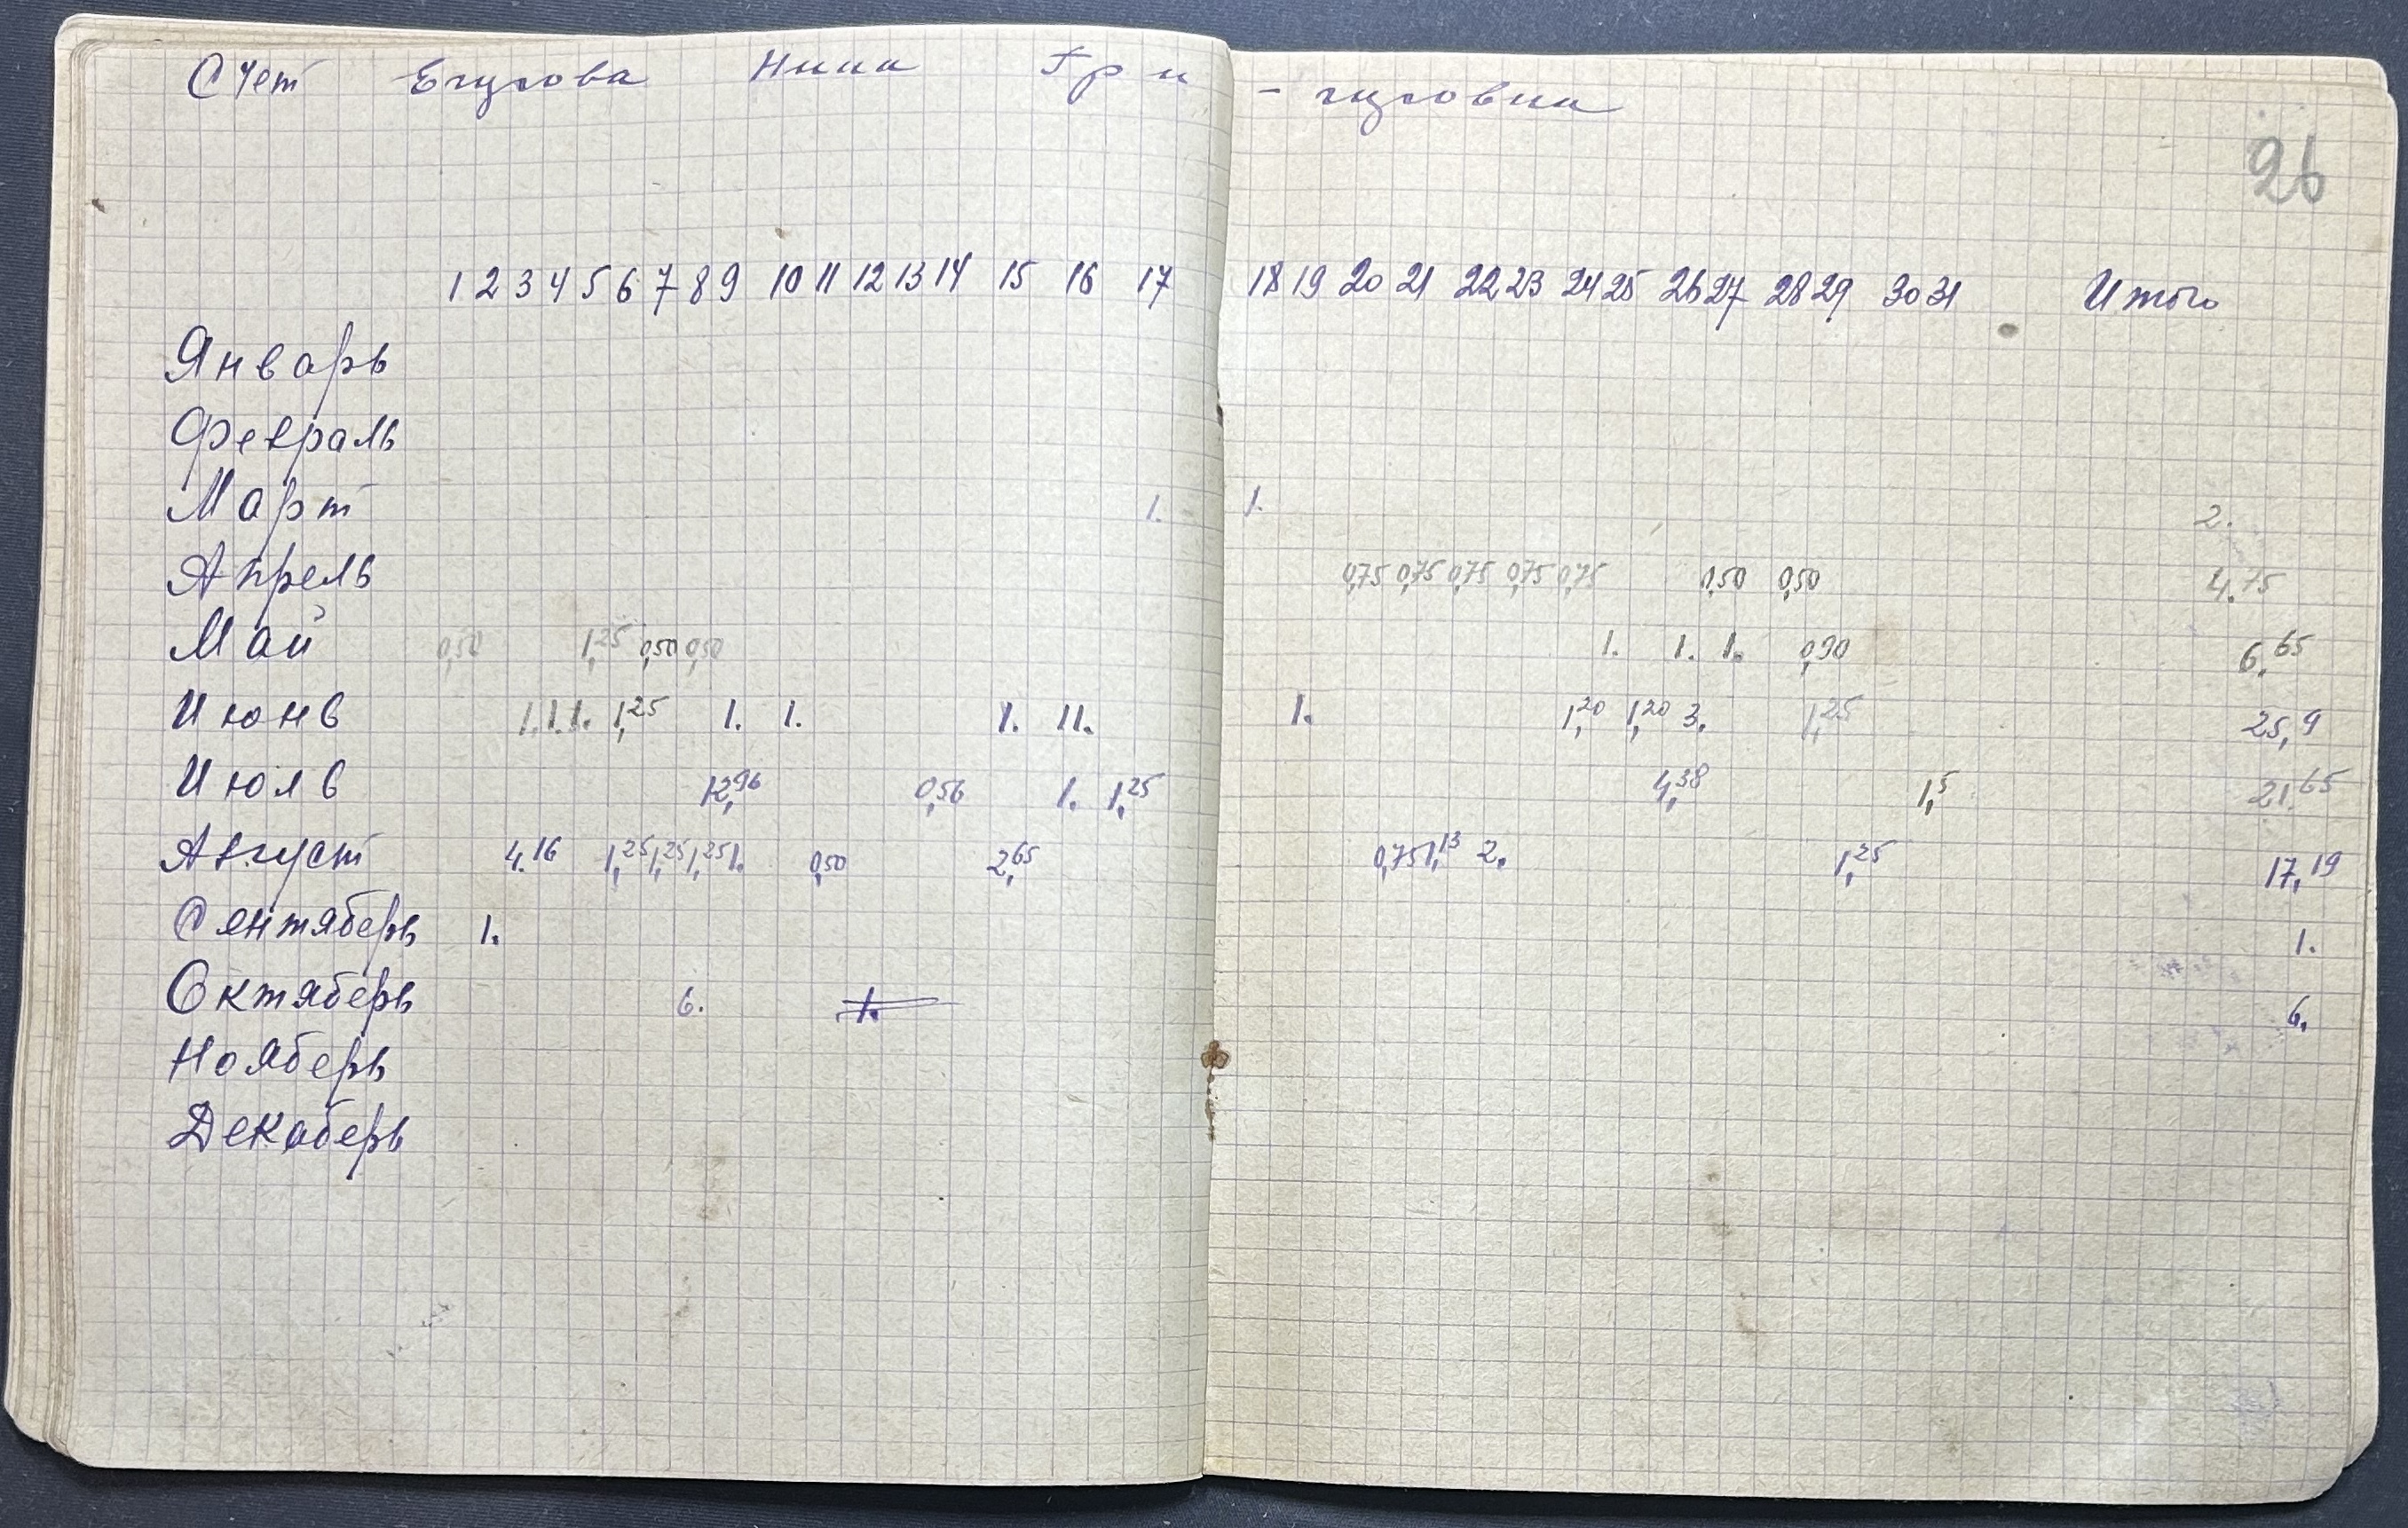 Счет Егурова Нина Гри - гировна
26
1 2 3 4 5 6 7 8 9 10 11 12 13 14 15 16 17 18 19 20 21 22 23 24 25 26 27 28 29 30 31 Итого
Январь
Февраль
Март 1. 1. 2.
Апрель 0,75 0,75 0,75 0,75 0,75 0,50 0,50 4.75
Май 0,50 1,25 0,50 0,50 1. 1. 1. 0,90 6.65
Июнв 1. 1. 1. 1,25 1. 1. 1. 11. 1. 1,20 1,20 3. 1,25 25,9
Июлв 12,96 0,56 1. 1,25 4,38 1,5 21.65
Август 4.16 1,25 1,25 1,25 1. 0,50 2,65 0,75 1,13 2. 1,25 17,19
Сентяберь 1. 1.
Октяберь 6. 1. 6.
Нояберь
Декаберь